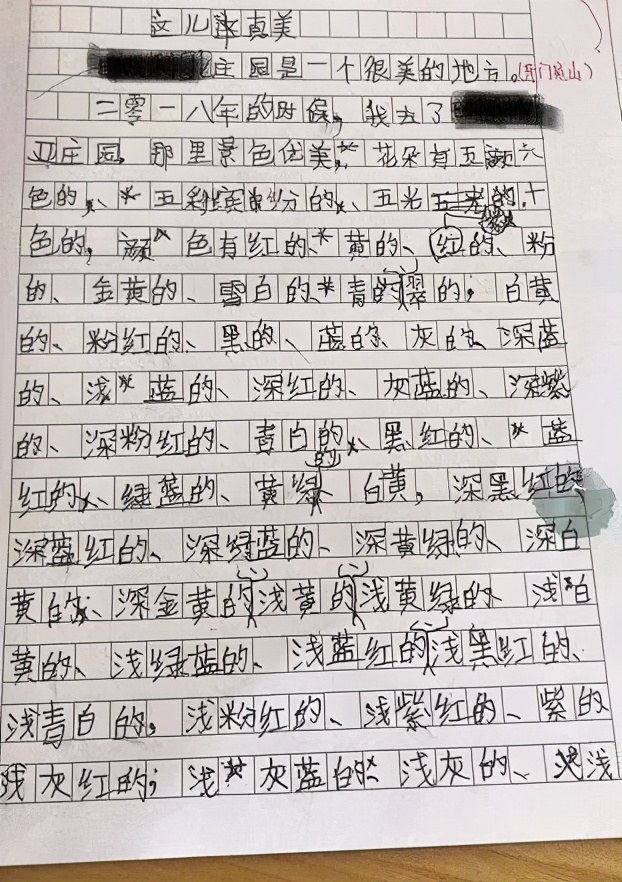 这儿真美
庄园是一个很美的地方。(开门见山)
二零一八年的时候，我去了
庄园，那里景色优美，花朵有五颜六
色的、五彩缤纷的、五光十
色的，颜色有红的、黄的、红的、粉
的、金黄的、雪白的、青的、翠的；白黄
的、粉红的、黑的、蓝的、灰的、深蓝
的、浅蓝的、深红的、灰蓝的、深紫
的、深粉红的、青白的、黑红的、蓝
红的、绿蓝的、黄绿的、白黄，深黑红的、
深蓝红的、深绿蓝的、深黄绿的、深白
黄的、深金黄的、浅黄的、浅黄绿的、浅白
黄的、浅绿蓝的、浅蓝红的、浅黑红的、
浅青白的，浅粉红的、浅紫红的、紫的
浅灰红的；浅灰蓝的、浅灰的、浅